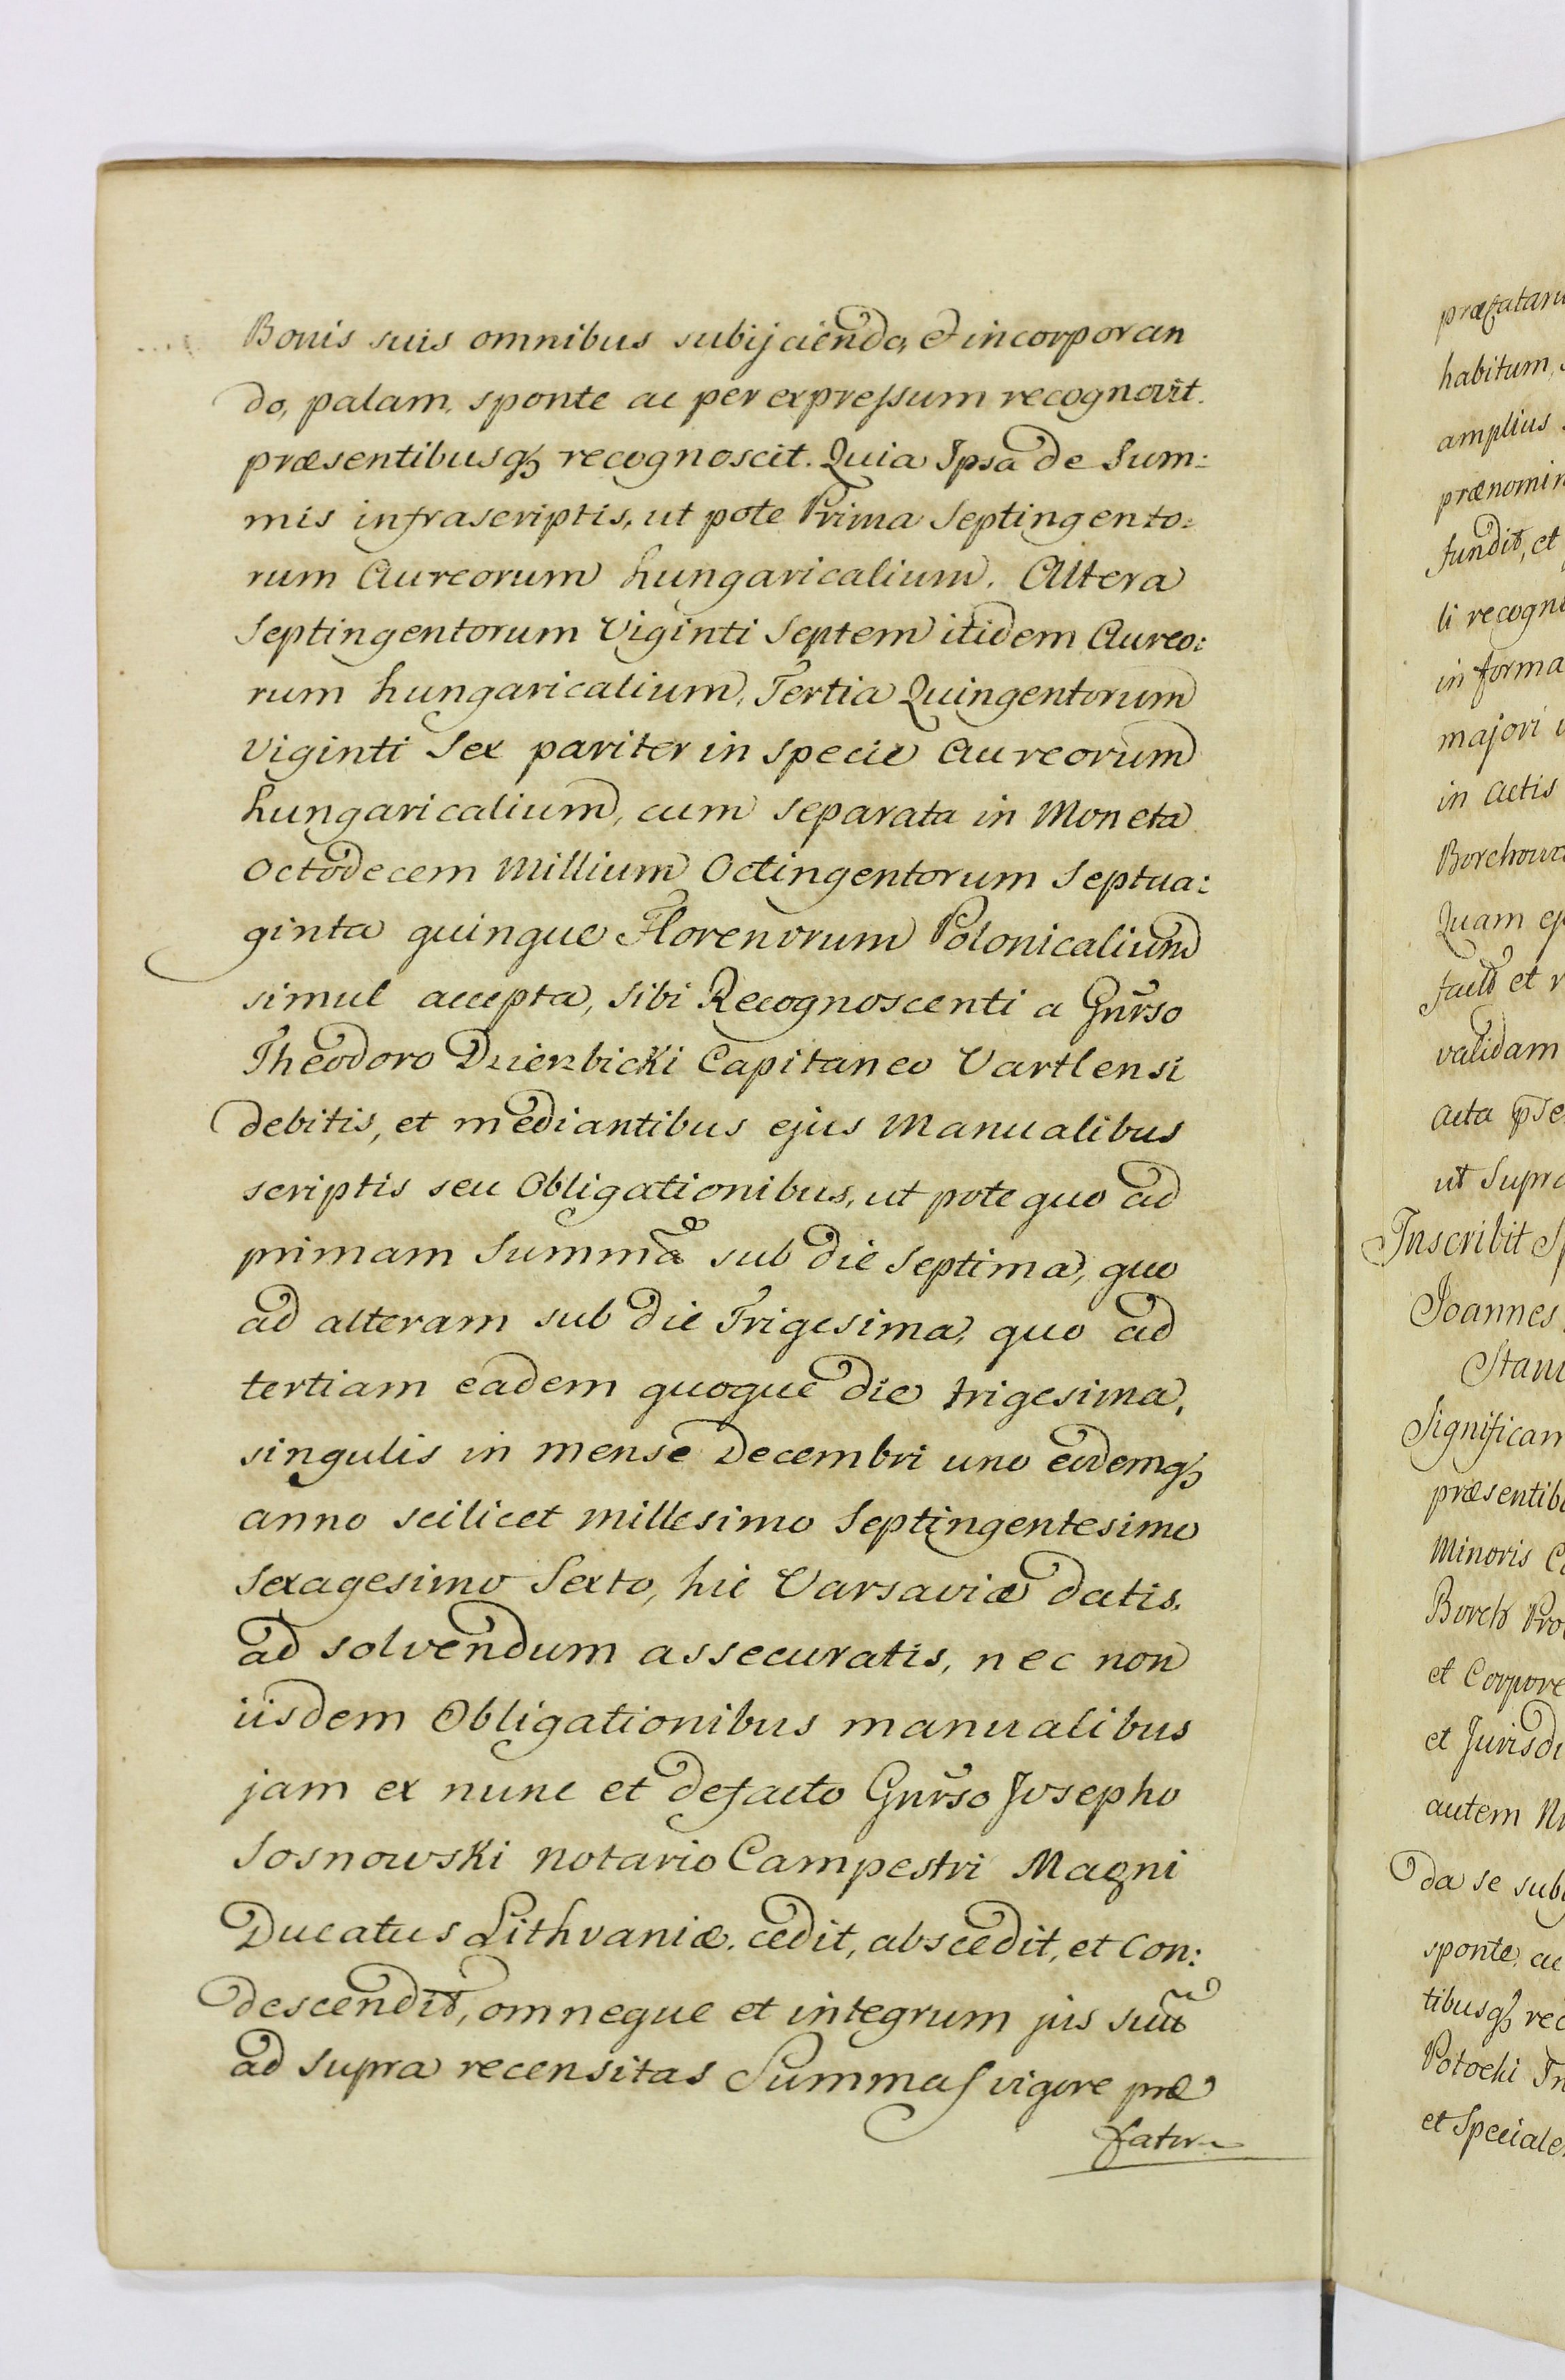 Bonis suis omnibus subijciendo, et incorporan
do, palam, sponte ac per expressum recognovit.
præsentibusq₃ recognoscit. Quia Ipsa de Sum:
mis infrascriptis, ut pote Prima Septingento:
rum Aureorum hungaricalium. Altera
Septingentorum Viginti Septem itidem Aureo:
rum hungaricalium, Tertia Quingentorum
Viginti Sex pariter in specie Aureorum
hungaricalium, cum separata in Moneta
Octodecem Millium Octingentorum Septua:
ginta quinque Florenorum Polonicalium
simul accepta, sibi Recognoscenti a Gnr̃so
Theodoro Dzierzbicki Capitaneo Vartlensi
debitis, et mediantibus ejus Manualibus
scriptis seu Obligationibus, ut pote quo ad
primam Summã sub die Septima, quo
ad alteram sub die Trigesima, quo ad
tertiam eadem quoque die trigesima,
singulis in mense Decembri uno eodemq₃
anno scilicet millesimo Septingentesimo
Sexagesimo Sexto, hic Varsaviæ datis.
ad solvendum assecuratis, nec non
iisdem Obligationibus manualibus
jam ex nunc et defacto Gnr̃so Josepho
Sosnowski Notario Campestri Magni
Ducatus Lithvaniæ. cedit, abscedit, et Con:
descendit, omneque et integrum jus suũ
ad supra recensitas Summas vigore præ
fator
præfatam
habitum,
amplius
prænomin
fundit, et
li recogno
in forma
majori
in Actis
Quam
facit et
validam
Acta
ut Supra
Inscribit
Joannes
Significam
præsentib
Minoris
Borch
et Corpore
et Jurisdi
autem
da se subj
sponte, ac
tibusq₃ rec
Potocki
et Speciale